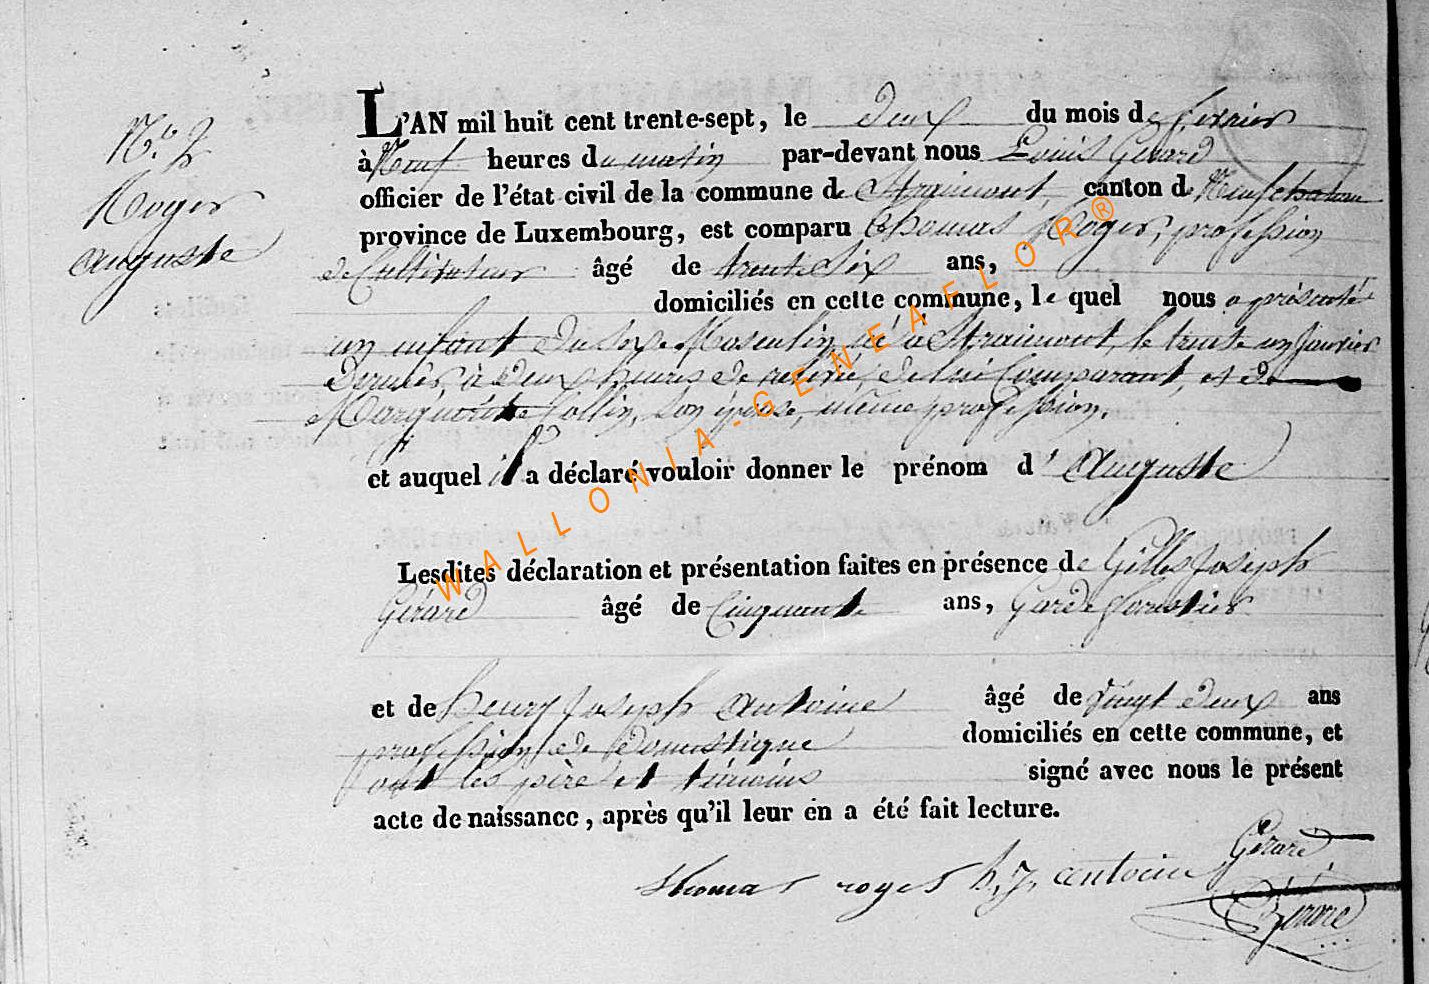 N.° 2
Roger
Auguste
L'AN mil huit cent trente-sept, le deux du mois de fevrier
à Neuf heures du matin par-devant nous Louis Gerard
officier de l'état civil de la commune de Straimont, canton de Neufchateau
province de Luxembourg, est comparu Thomas Roger, profession
de Cultivateur âgé de trente six ans,
domiciliés en cette commune, le quel nous a présenté
un enfant du sexe Masculin né à Straimont, le trente un Janvier
dernier à deux heures de relevé, de lui Comparant, et de
Marguerite Collin, son épouse, même profession.
et auquel il a déclaré vouloir donner le prénom d'Auguste
Lesdites déclaration et présentation faites en présence de Gilles Joseph
Gérard âgé de Cinquante ans, Garde forestier
et de henry Joseph Antoine âgé de vingt deux ans
profession de domestique domiciliés en cette commune, et
ont les père et témoins signé avec nous le présent
acte de naissance, après qu'il leur en a été fait lecture.
Gérard
thomas roger h. j. antoine
Gerard
WALLONIA-GENEAFLOR®